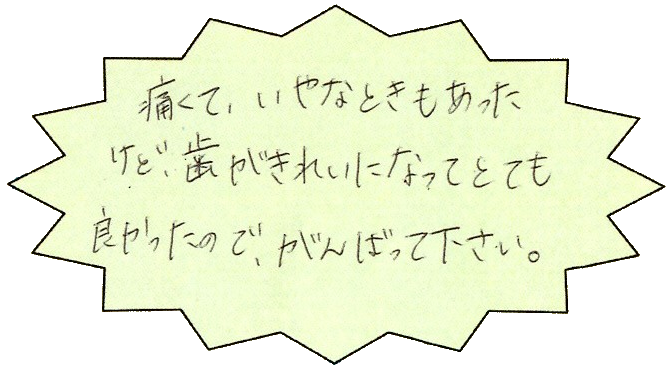 痛くて、いやなときもあった
けど、歯がきれいになってとても
良かったので、がんばって下さい。